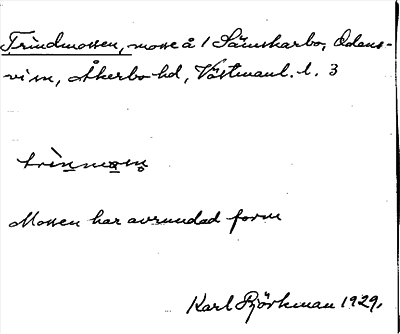 Trindmossen, mosse å 1 Sämskarbo, Odens-
vi sn, Åkerbo hd, Västmanl. l. 3
trìnmɑsn̥
Mossen har avrundad form
Karl Björkman 1929.